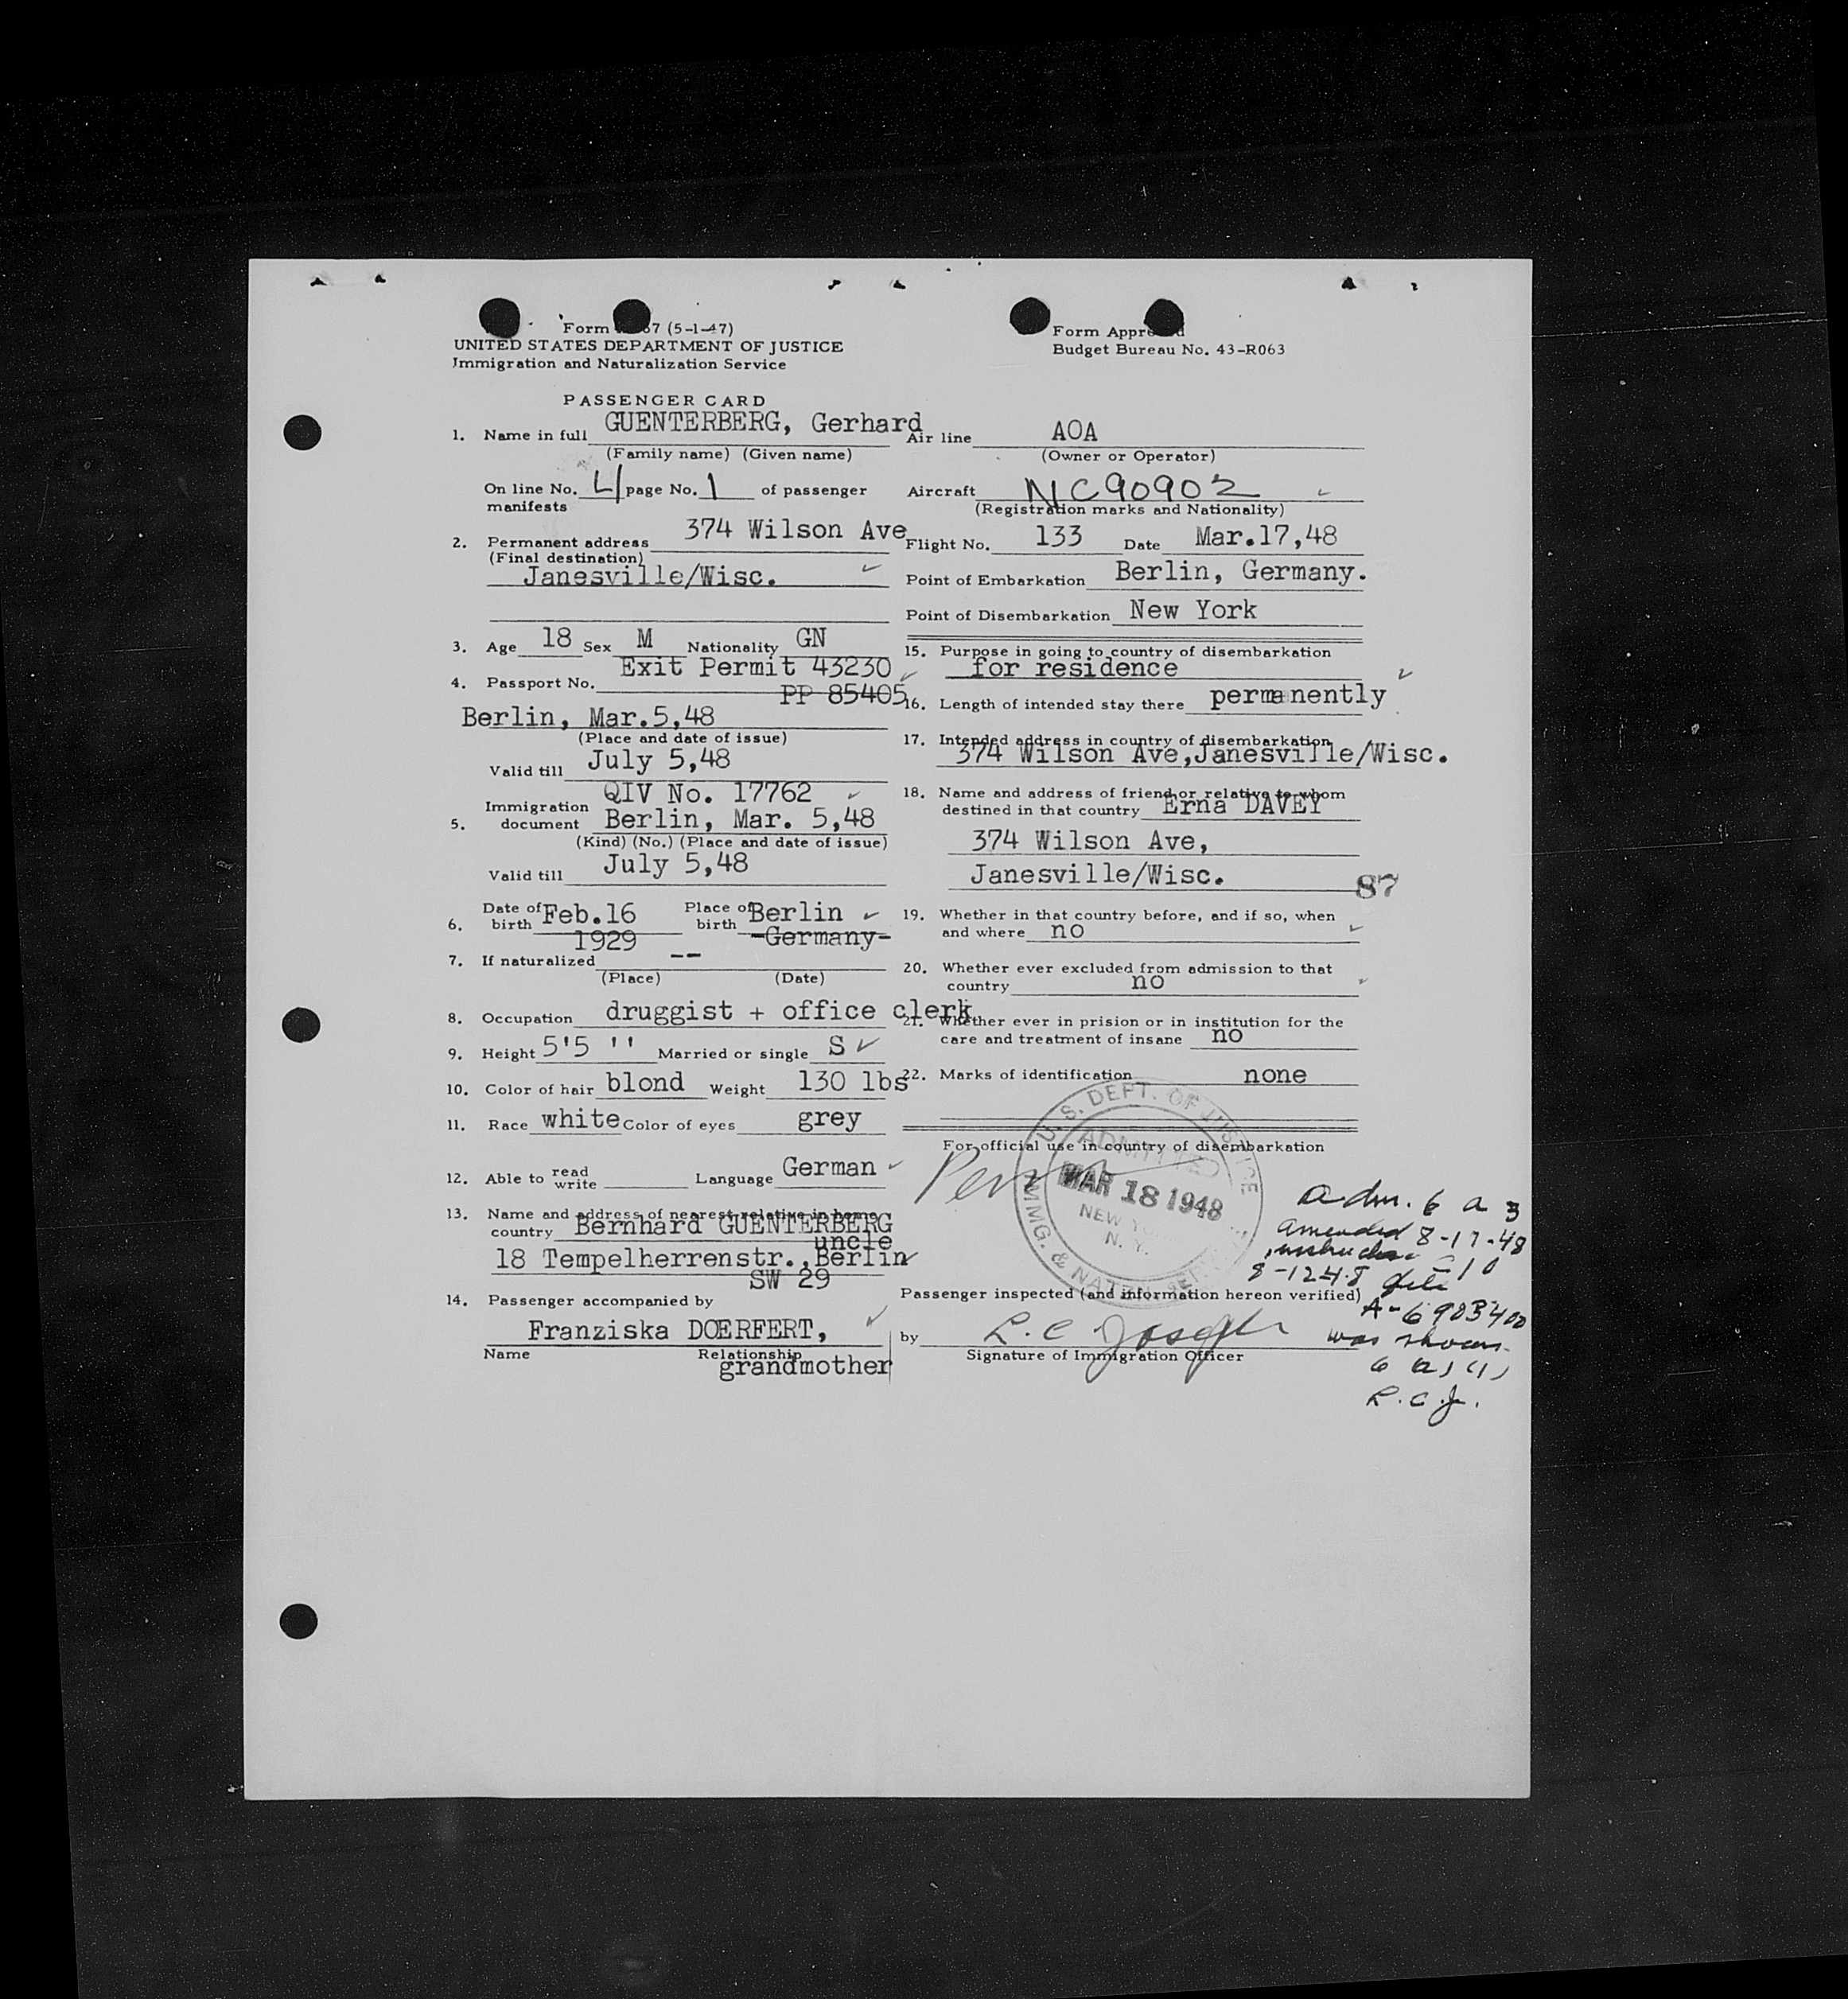 Form 67 (5-1-47)
UNITED STATES DEPARTMENT OF JUSTICE
Immigration and Naturalization Service
Form Approved
Budget Bureau No. 43-R063
PASSENGER CARD
1. Name in full GUENTERBERG, Gerhard
(Family name) (Given name)
On line No. 4 page No. 1 of passenger
manifests
2. Permanent address 374 Wilson Ave
(Final destination)
Janesville/Wisc.
3. Age 18 Sex M Nationality GN
Exit Permit 43230
4. Passport No. PP 85405
Berlin, Mar.5,48
(Place and date of issue)
Valid till July 5,48
QIV No. 17762
5. Immigration document Berlin, Mar. 5,48
(Kind) (No.) (Place and date of issue)
Valid till July 5,48
6. Date of birth Feb.16 1929 Place of birth Berlin -Germany-
7. If naturalized --
(Place) (Date)
8. Occupation druggist + office clerk
9. Height 5'5 '' Married or single S
10. Color of hair blond Weight 130 lbs
11. Race white Color of eyes grey
12. Able to read write Language German
13. Name and address of nearest relative in home
country Bernhard GUENTERBERG
uncle
18 Tempelherrenstr., Berlin
SW 29
14. Passenger accompanied by
Franziska DOERFERT,
Name Relationship
grandmother
Air line AOA
(Owner or Operator)
Aircraft NC90902
(Registration marks and Nationality)
Flight No. 133 Date Mar.17,48
Point of Embarkation Berlin, Germany.
Point of Disembarkation New York
15. Purpose in going to country of disembarkation
for residence
16. Length of intended stay there permanently
17. Intended address in country of disembarkation
374 Wilson Ave,Janesville/Wisc.
18. Name and address of friend or relative to whom
destined in that country Erna DAVEY
374 Wilson Ave,
Janesville/Wisc.
87
19. Whether in that country before, and if so, when
and where no
20. Whether ever excluded from admission to that
country no
21. Whether ever in prision or in institution for the
care and treatment of insane no
22. Marks of identification none
For official use in country of disembarkation
U. S. DEPT. OF JUSTICE
ADMITTED
MAR 18 1948
NEW YORK
N. Y.
IMMG. & NATZ. SERVICE
adm. 6 a 3
amended 8-17-48
file
A-6903400
was shown
6 a) (1)
R.C.J.
Passenger inspected (and information hereon verified)
by R.C Joseph
Signature of Immigration Officer